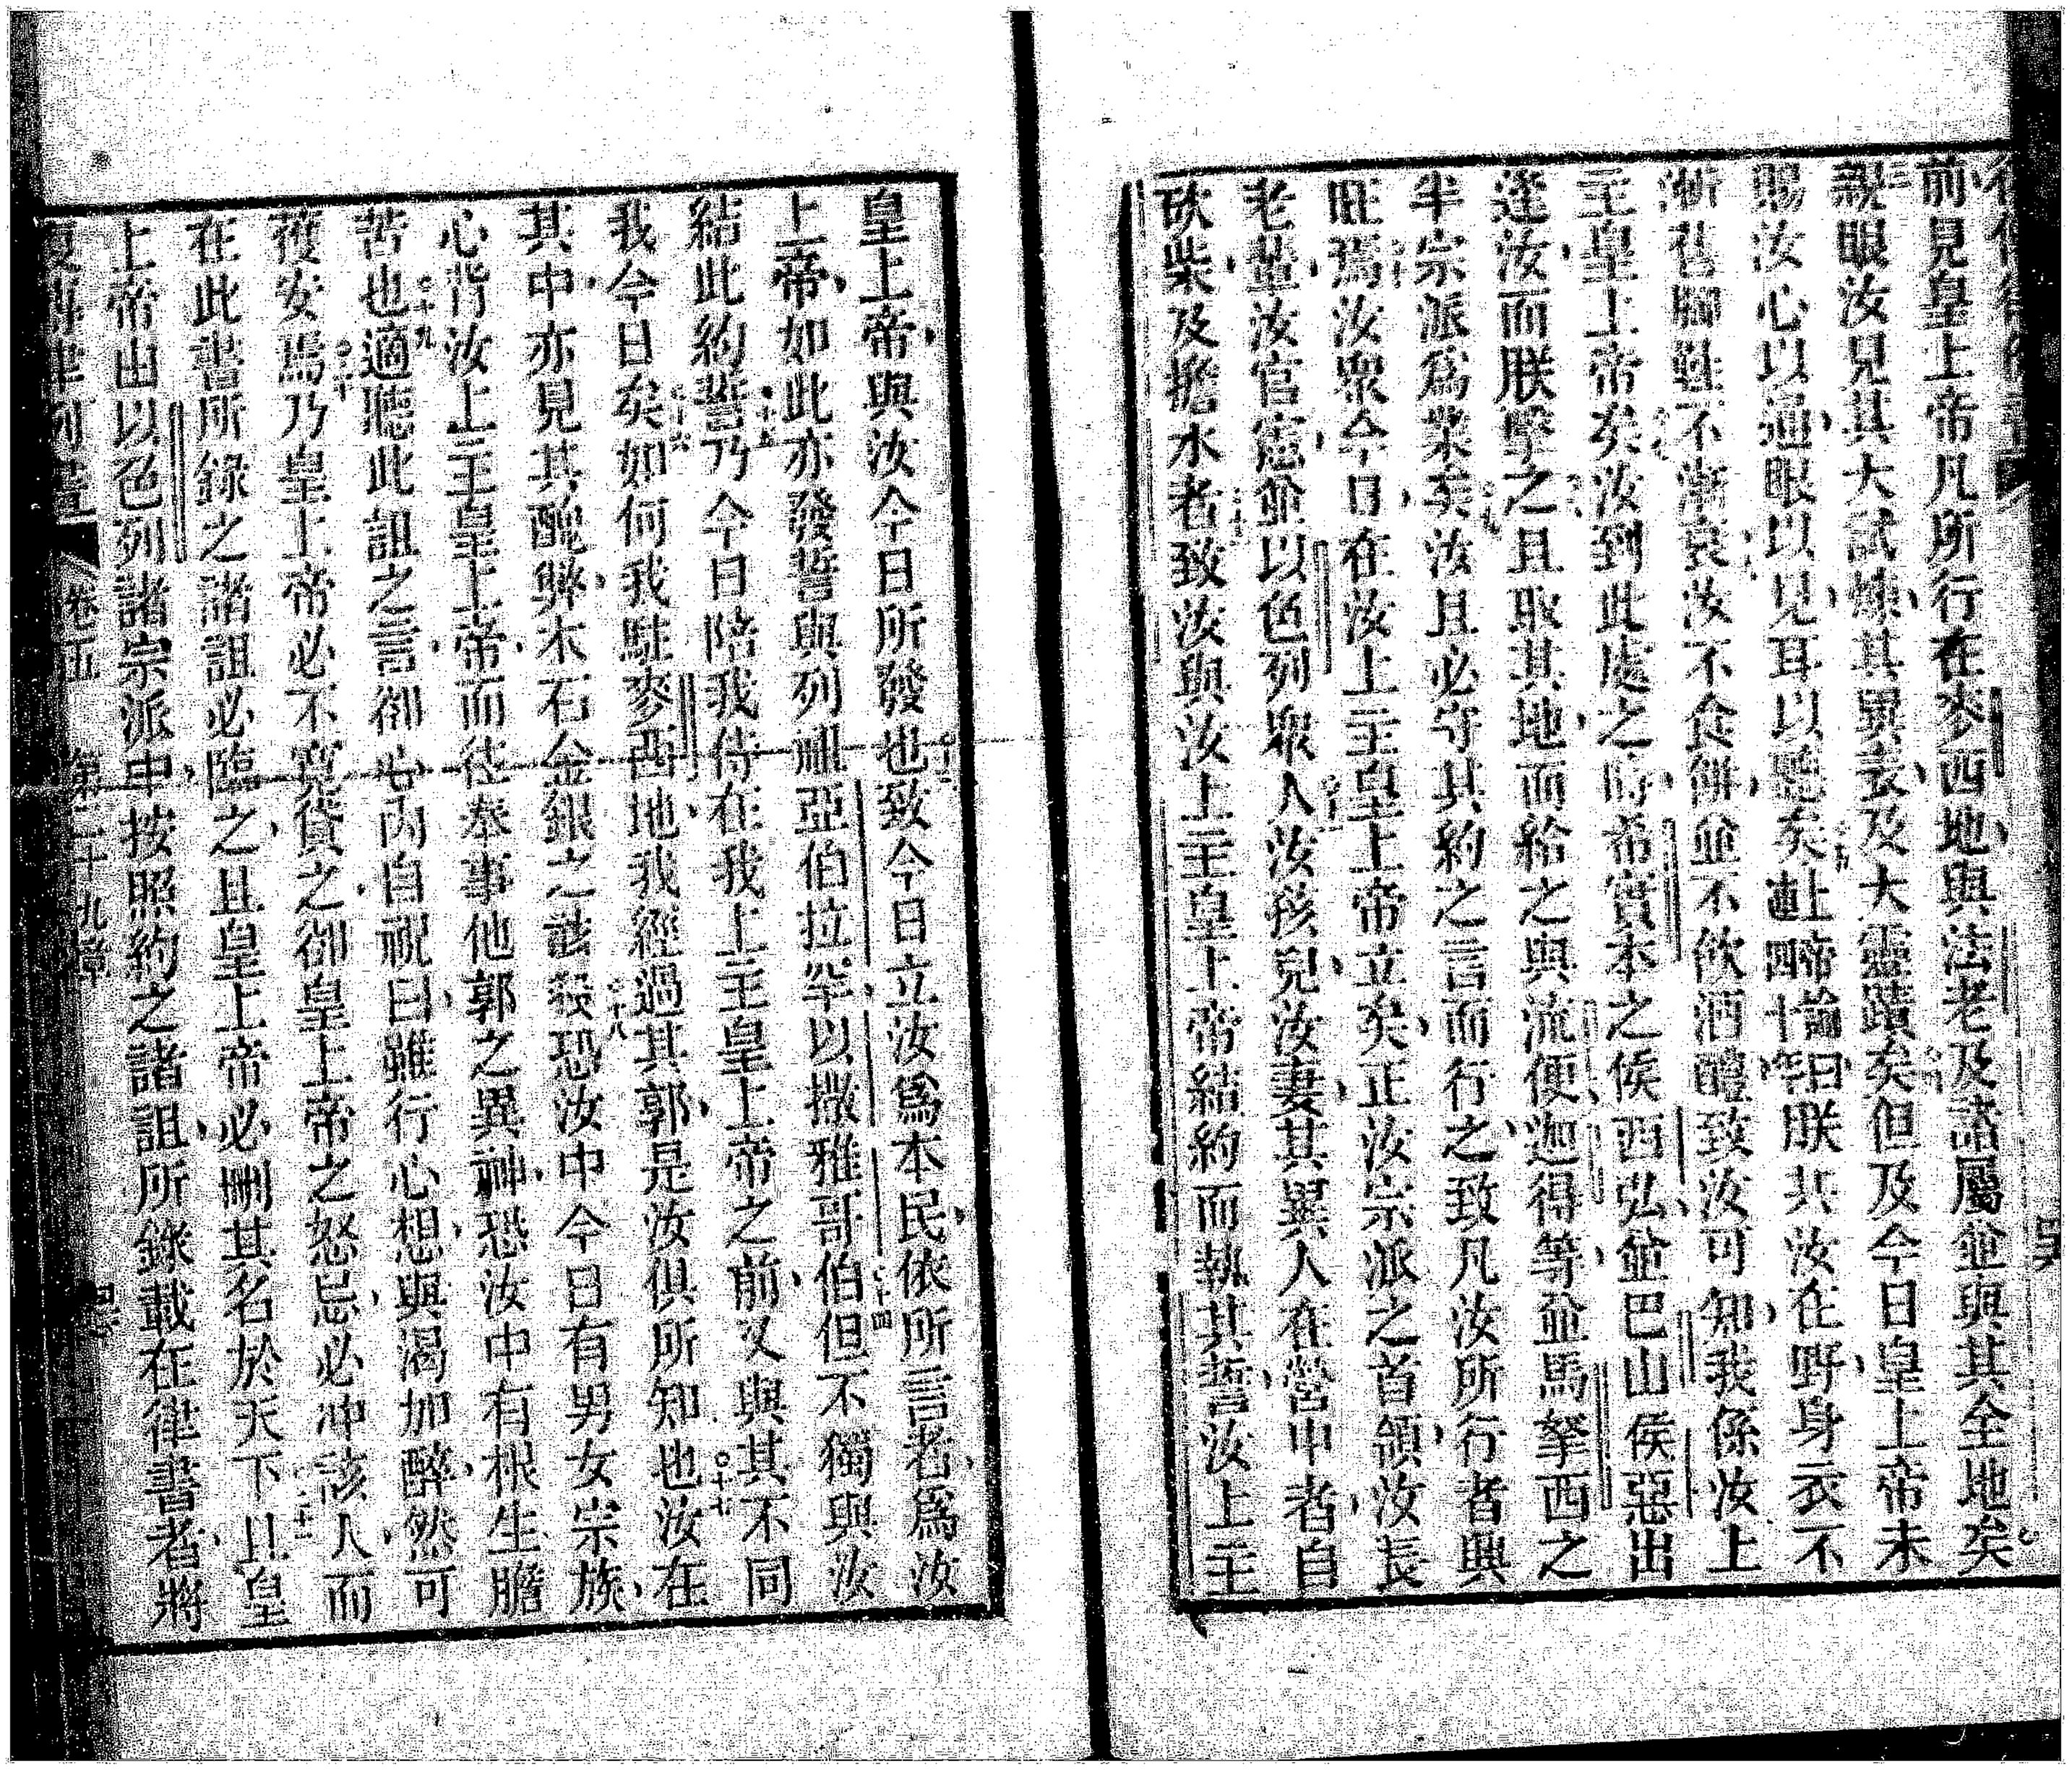 前見皇上帝凡所行在麥西地與法老及諸屬並與其全地矣
親眼汝見其大試煉其異表及大靈蹟矣但及今日皇上帝未
賜汝心以通眼以見耳以聽矣上帝諭曰朕共汝在野身衣不
漸舊腳鞋不漸衰汝不食餅並不飲酒醴致汝可知我係汝上
主皇上帝矣汝到此處之時希實本之侯西弘並巴山侯惡出
逢汝而朕擊之且取其地而給之與流便迦得等並馬拏西之
半宗派爲業矣汝且必守其約之言而行之致凡汝所行者興
旺焉汝眾今日在汝上主皇上帝立矣正汝宗派之首領汝長
老輩汝官憲並以色列眾人汝孩兒汝妻其異人在營中者自
砍柴及擔水者致汝與汝上主皇上帝結約而執其誓汝上主
皇上帝與汝今日所發也致今日立汝爲本民依所言者爲汝
上帝如此亦發誓與列祖亞伯拉罕以撒雅哥伯但不獨與汝
結此約誓乃今日陪我侍在我上主皇上帝之前又與其不同
我今日矣如何我駐麥西地我經過其郭是汝俱所知也汝在
其中亦見其醜弊木石金銀之該殺恐汝中今日有男女宗族
心背汝上主皇上帝而往奉事他郭之異神恐汝中有根生膽
苦也適聽此詛之言卻心內自祝曰雖行心想與渴加醉然可
獲安焉乃皇上帝必不寬貸之卻皇上帝之怒忌必沖該人而
在此書所錄之諸詛必臨之且皇上帝必刪其名於天下且皇
上帝由以色列諸宗派中按照約之諸詛所錄載在律書者將
復傳律列書 卷五 第二十九章